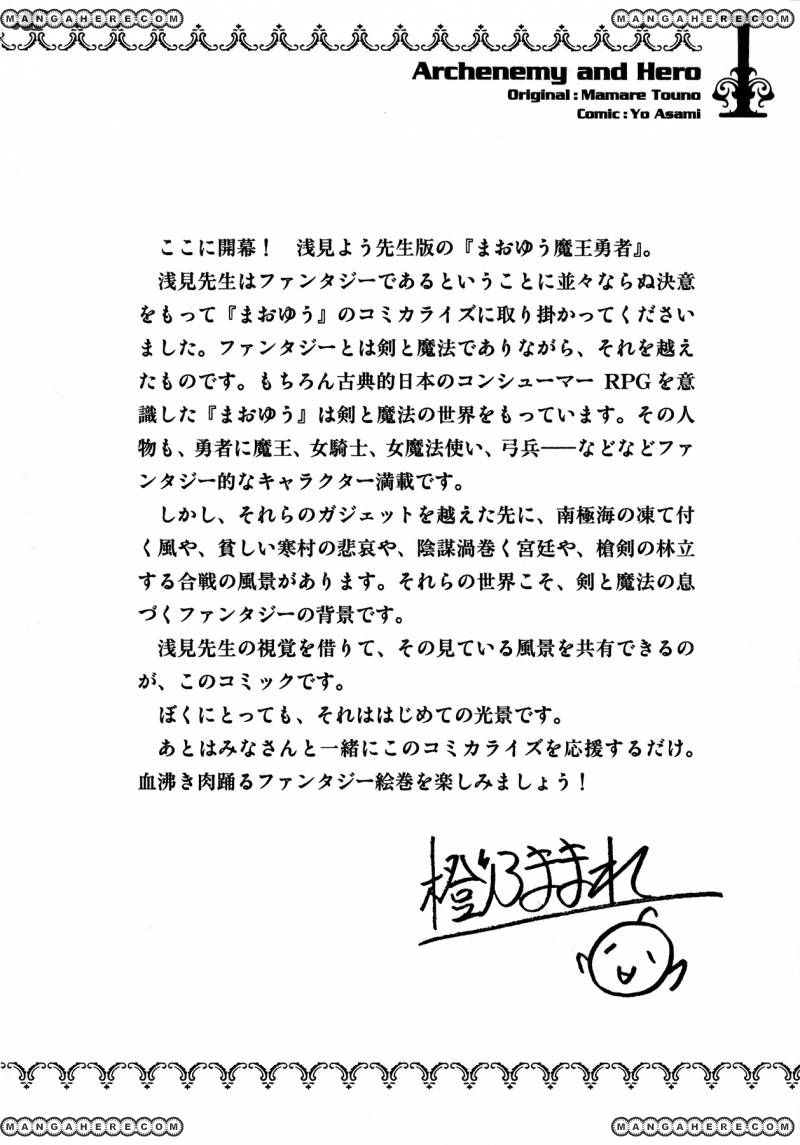 MANGAHERE.COM MANGAHERE.COM
Archenemy and Hero
Original : Mamare Touno
Comic : Yo Asami
1
ここに開幕！　浅見よう先生版の『まおゆう魔王勇者』。
浅見先生はファンタジーであるということに並々ならぬ決意
をもって『まおゆう』のコミカライズに取り掛かってください
ました。ファンタジーとは剣と魔法でありながら、それを越え
たものです。もちろん古典的日本のコンシューマー RPG を意
識した『まおゆう』は剣と魔法の世界をもっています。その人
物も、勇者に魔王、女騎士、女魔法使い、弓兵――などなどファ
ンタジー的なキャラクター満載です。
しかし、それらのガジェットを越えた先に、南極海の凍て付
く風や、貧しい寒村の悲哀や、陰謀渦巻く宮廷や、槍剣の林立
する合戦の風景があります。それらの世界こそ、剣と魔法の息
づくファンタジーの背景です。
浅見先生の視覚を借りて、その見ている風景を共有できるの
が、このコミックです。
ぼくにとっても、それははじめての光景です。
あとはみなさんと一緒にこのコミカライズを応援するだけ。
血沸き肉踊るファンタジー絵巻を楽しみましょう！
橙乃ままれ
MANGAHERE.COM MANGAHERE.COM